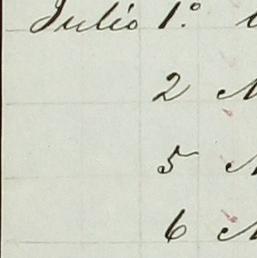 Julio 1.º
2
5
6